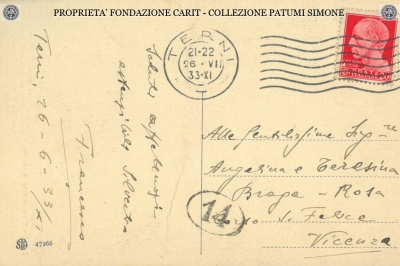 PROPRIETA' FONDAZIONE CARIT - COLLEZIONE PATUMI SIMONE
TERNI
21-22
26 - VII
33-XI
Terni, 26-6-33/XI
Saluti affettuosi
estensibili Silvestro
Francesco
Alle Gentilissime Sig.re
Angelina e Teresina
Braga - Rosa
Corso S. Felice
Vicenza
14
47266